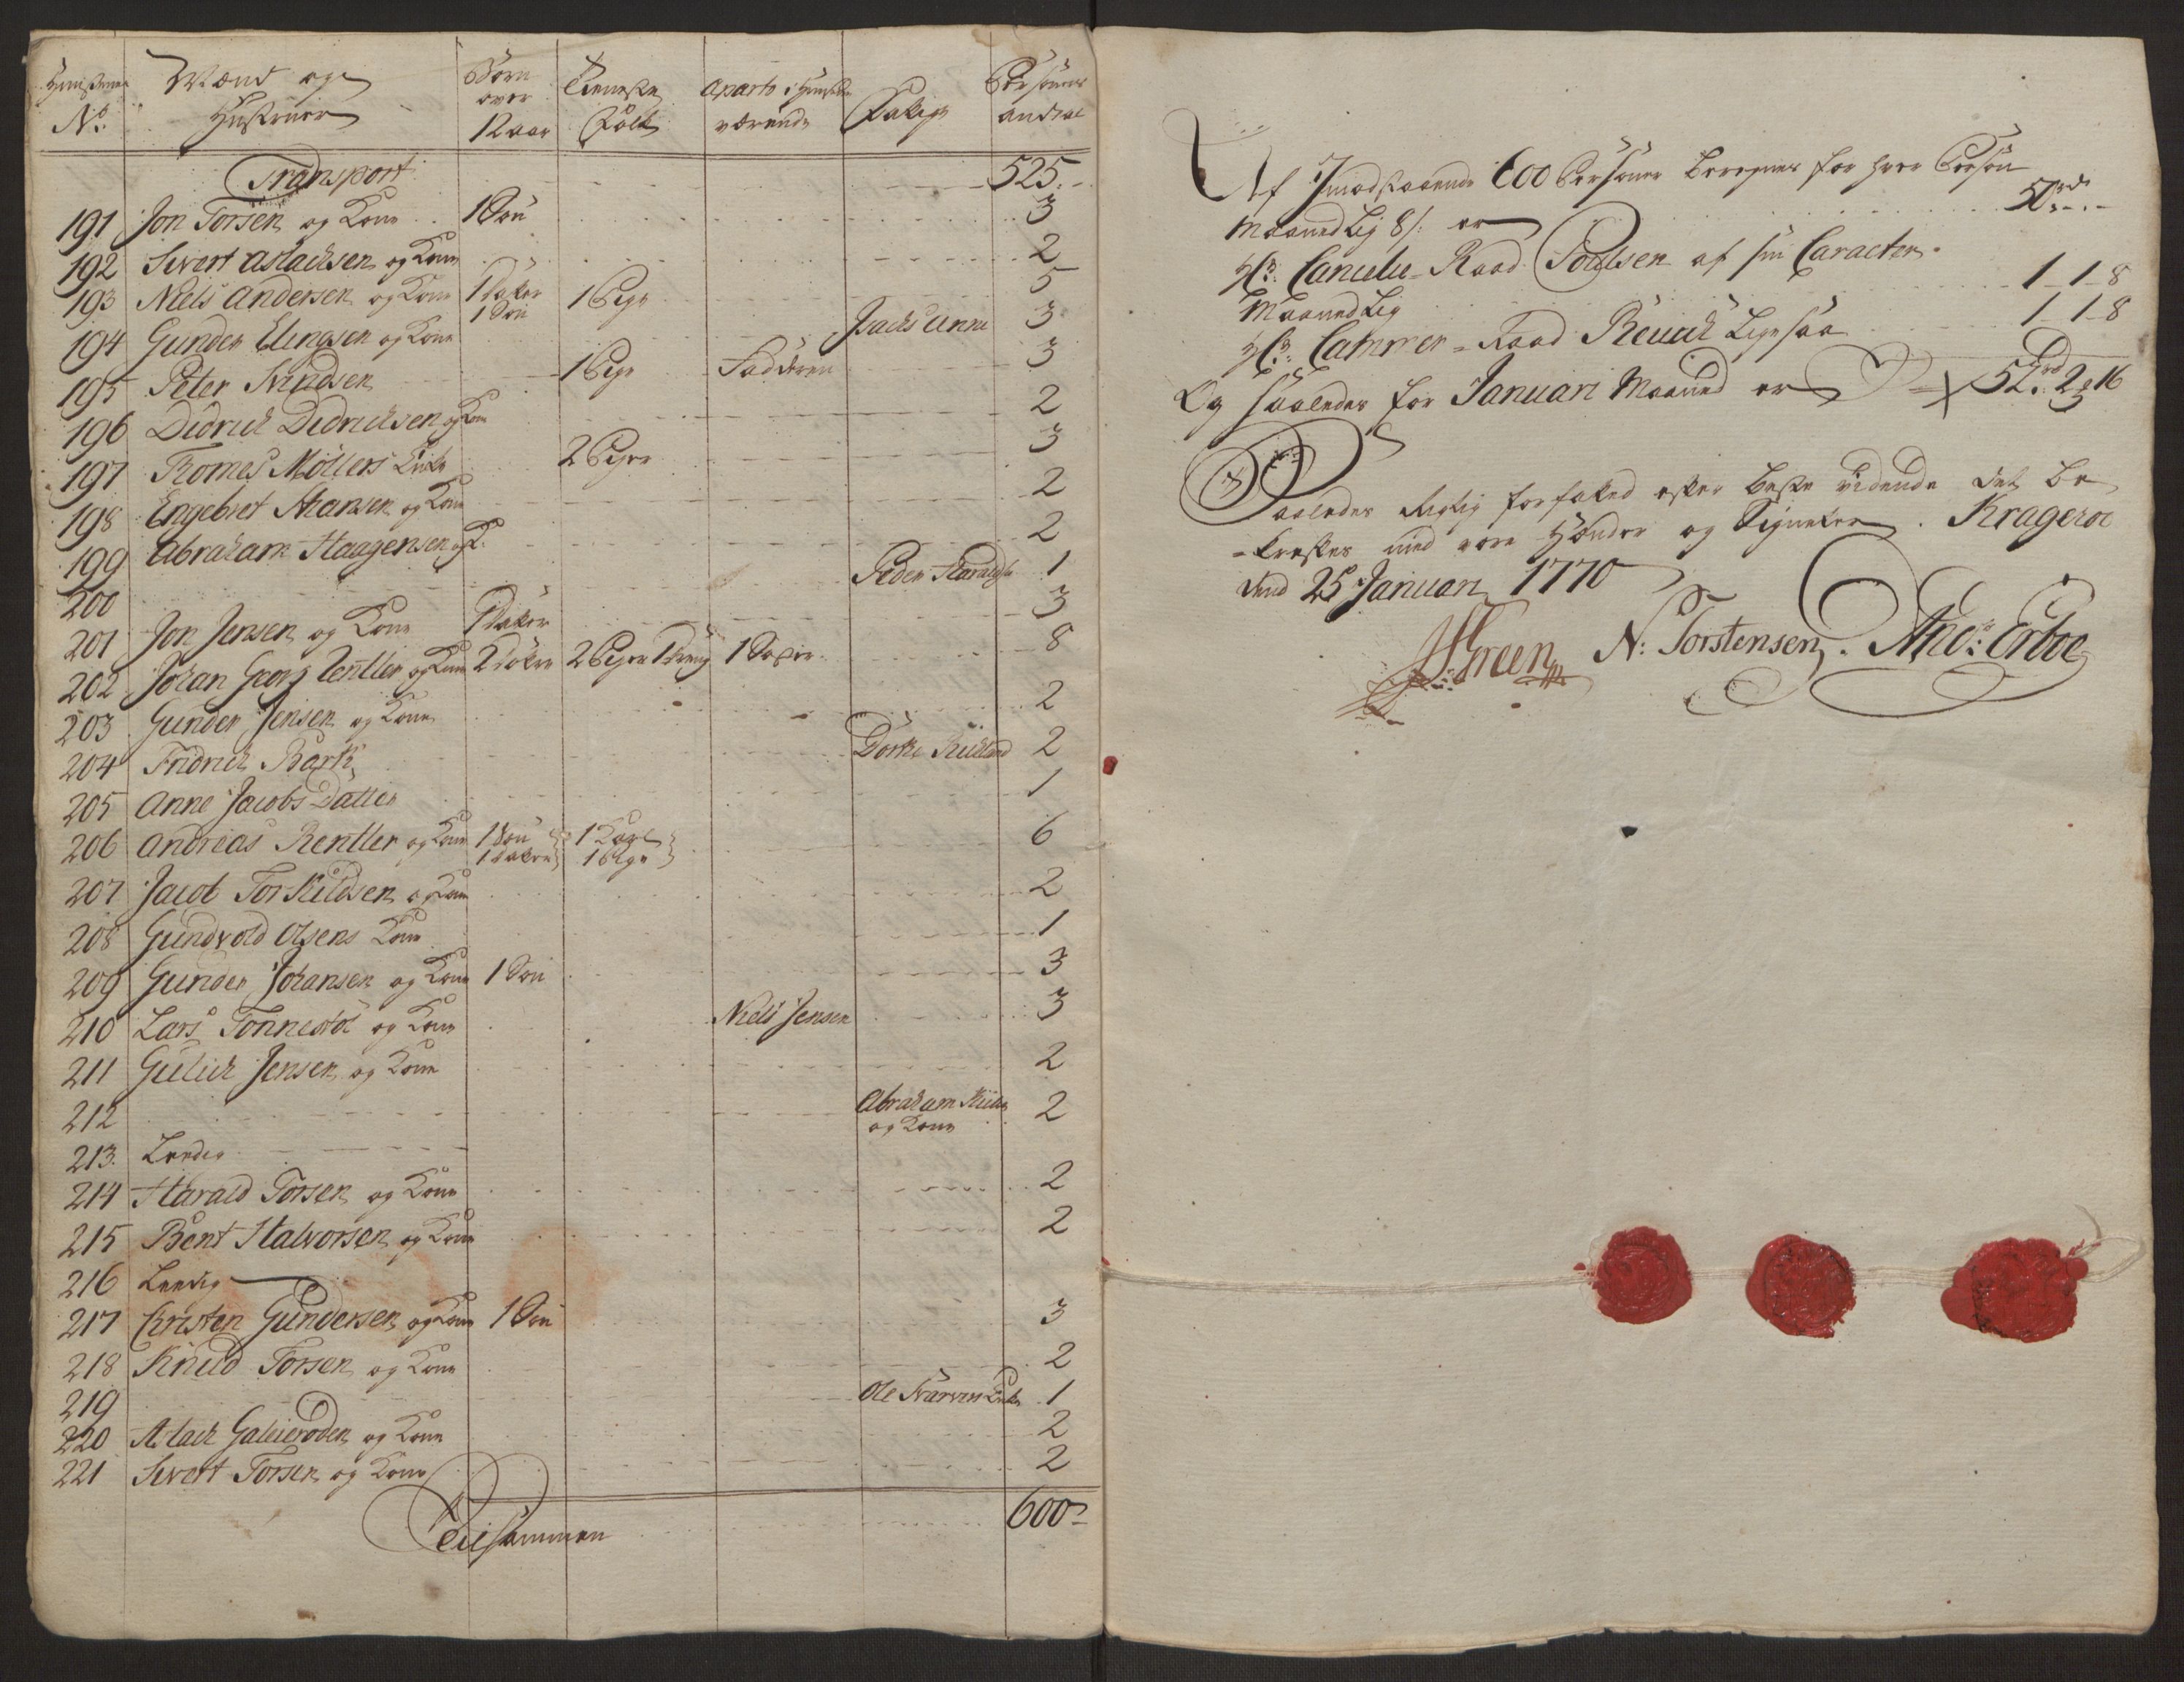 Huusenes No. | Mænd og Hustruer | Börn over 12 aar | Tieneste Folk | Aparte i Huuset værende | Fattige | Persohners andtal
Transport 525.
191 Jon Torsen og Kone 1 Sön 3
192 Sivert Aslachsen og Kone 2
193 Niels Andersen og Kone 1 Datter 1 Sön 1 Pige 5
194 Gunder Elingsen og Kone Jachs Anne 3
195 Peter Svendsen 1 Pige Fadderen 3
196 Didrich Didrichsen og Kone 2
197 Tomes Möllers Enke 2 Piger 3
198 Engebret Hansen og Kone 2
199 Abraham Haagensen og K. 2
200 Peder Haraldsen 1
201 Jon Jensen og Kone 1 Datter 3
202 Johan Georg Zentler og Kone 2 Döttre 2 Piger 1 Dreng 1 8
203 Gunder Jensen og Kone 2
204 Fridrich Bark Dorthe 2
205 Anne Jacobs Datter 1
206 Andreas Rentler og Kone 1 Sön 1 Datter 1 Karl 1 Pige 6
207 Jacob Torkildsen og Kone 2
208 Gundvold Olsens Kone 1
209 Gunder Johansen og Kone 1 Sön 3
210 Lars Tonnesöl og Kone Niels Jensen 3
211 Gulich Jensen og Kone 2
212 Abraham og Kone 2
213. Leedig
214 Harald Torsen og Kone 2
215 Bent Halvorsen og Kone 2
216 Leedig
217 Christen Gundersen og Kone 1 Sön 3
218 Knud Torsen og Kone 2
219 Ole Enke 1
220 Aslach Galeieroden og Kone 2
221 Sivert Torsen og Kone 2
Tilsammen 600
Af Imodstaaende 600 Persohner beregnes for hver Persohn
Maanedlig 8 s: er 50 rd
Hr: Cancelie-Raad Poulsen af sin Caracter
Maanedlig 1-1-8
Hr: Cammer-Raad Ligesaa 1-1-8
Og saaledes for Januari Maaned er 52 rd 2 16
Saaledes Rigtig forfatted efter beste vidende det be
-kræftes med vore Hænder og Signeter. Krageröe
dend 25 Januari 1770
Green N: Torstensen. And: Erboe